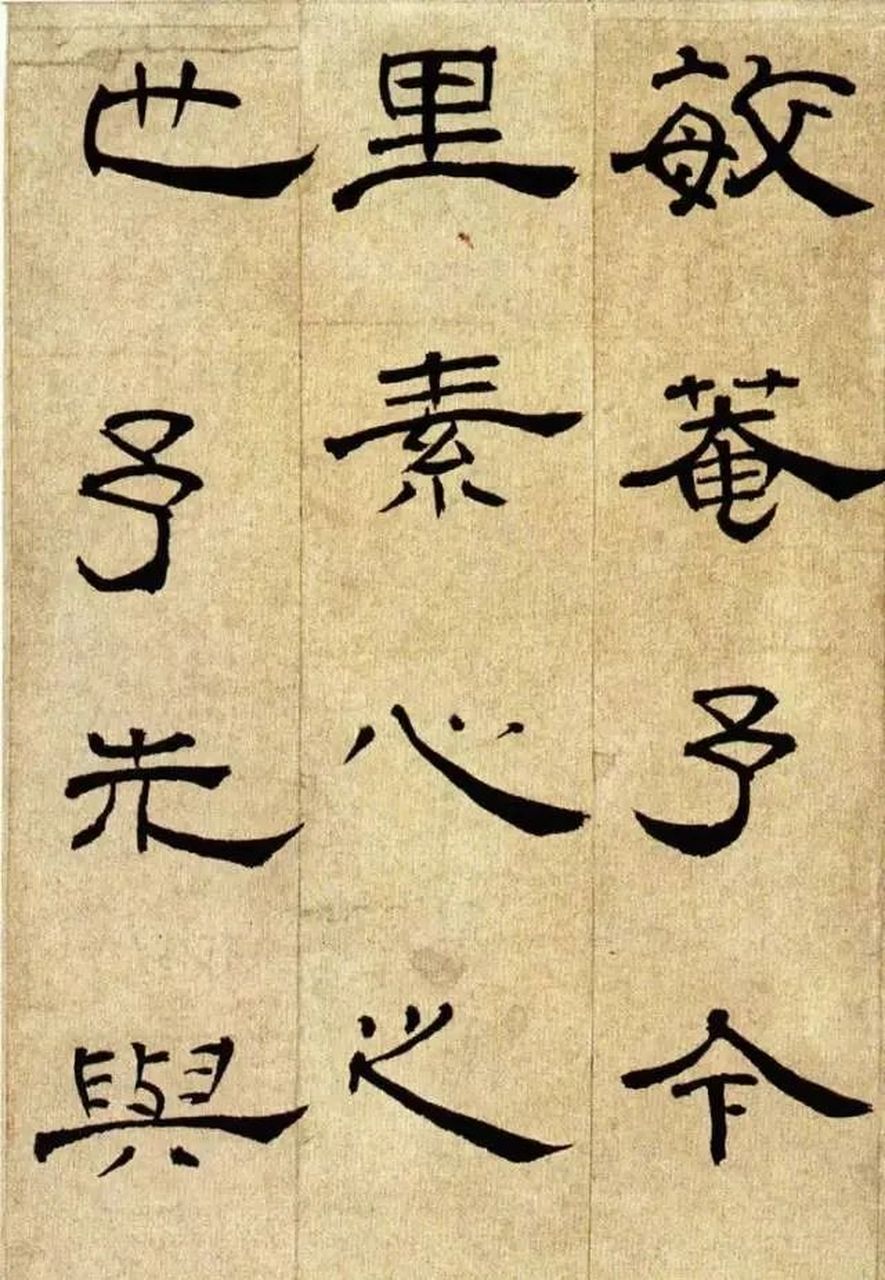 敏菴予令
里素心之
世予先與